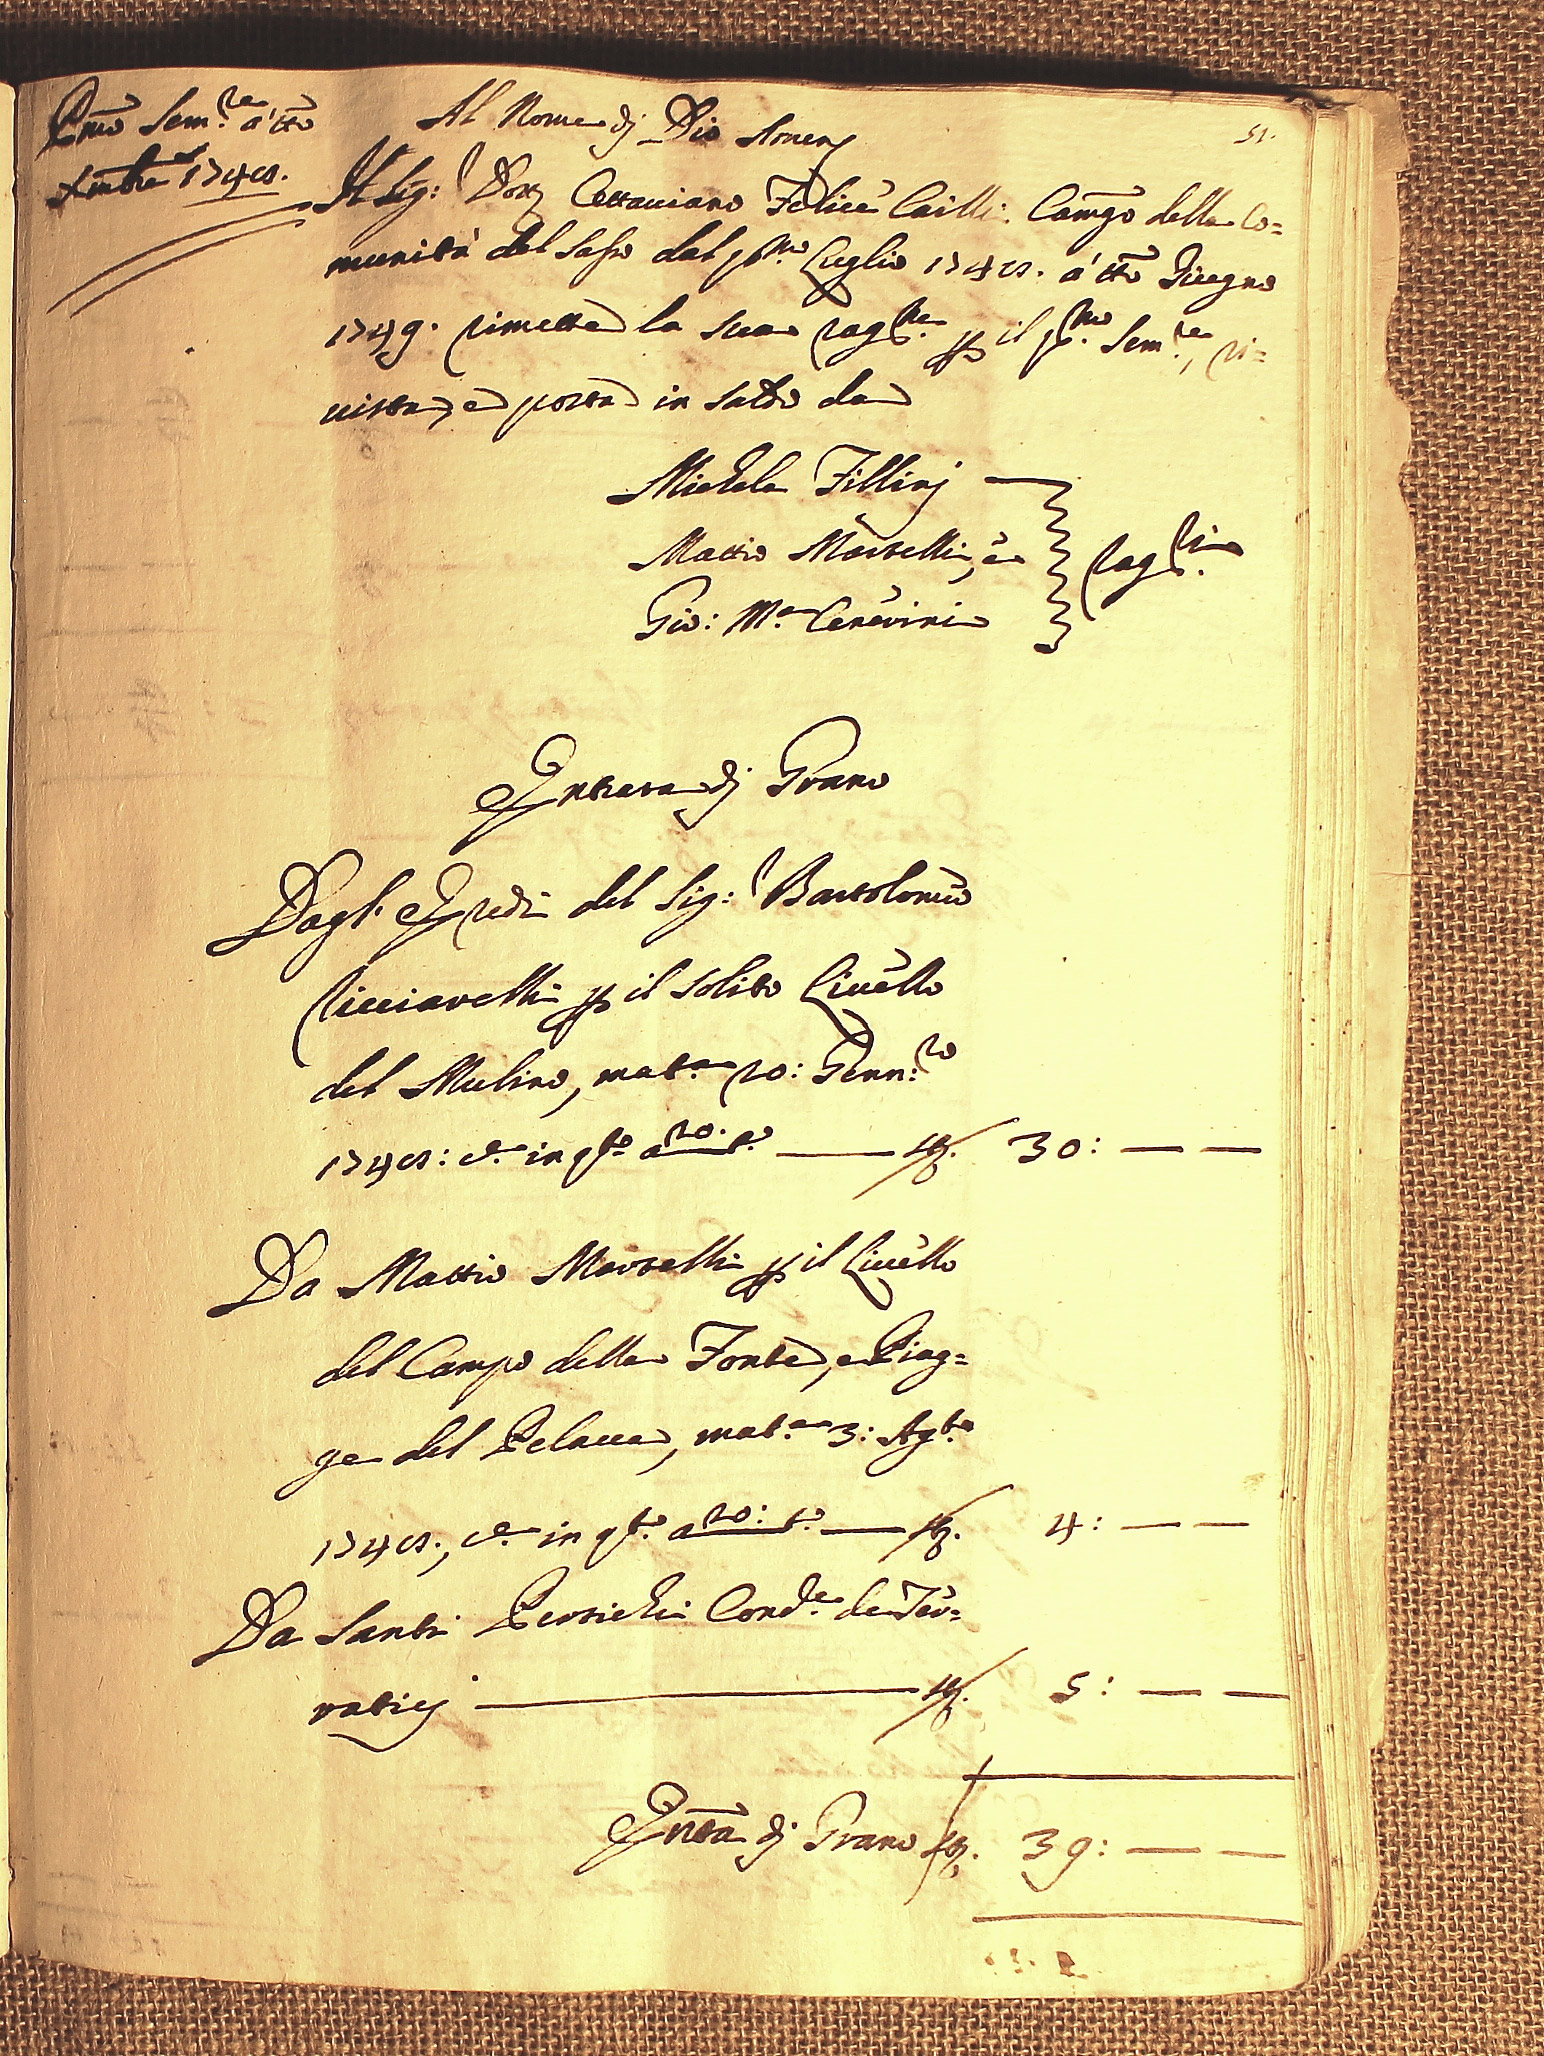 Pmo Sem.re a tto
Xmbre 1748.
51.
Al Nome dj Dio Amen
Il Sig: Dott Ottaviano Felice Cailli Camgo della Co=
munità del Sasso dal pmo Luglio 1748. à tto Giugno
1749. rimette la sua rag.ne p il pmo Sem.re, ri=
vista, e posta in saldo da
Michele Fillinj
Mattio Martelli, e
Gio: Ma Cenerini
rag.ri
Entrata dj Grano
Dagl' Eredi del Sig: Bartolomeo
Ricciarelli p il solito Livello
del Mulino, mat.a 20: Genn:ro
1748: e in qto 30: — —
Da Mattio Martelli p il Livello
del Campo della Fonte, e Piag=
ge del Pelacca, mat.a 3: Agto
1748., e in qto 4: — —
Da Santi Persichi Cond.e de Ter=
ratici 5: — —
Entta dj Grano 39: — —